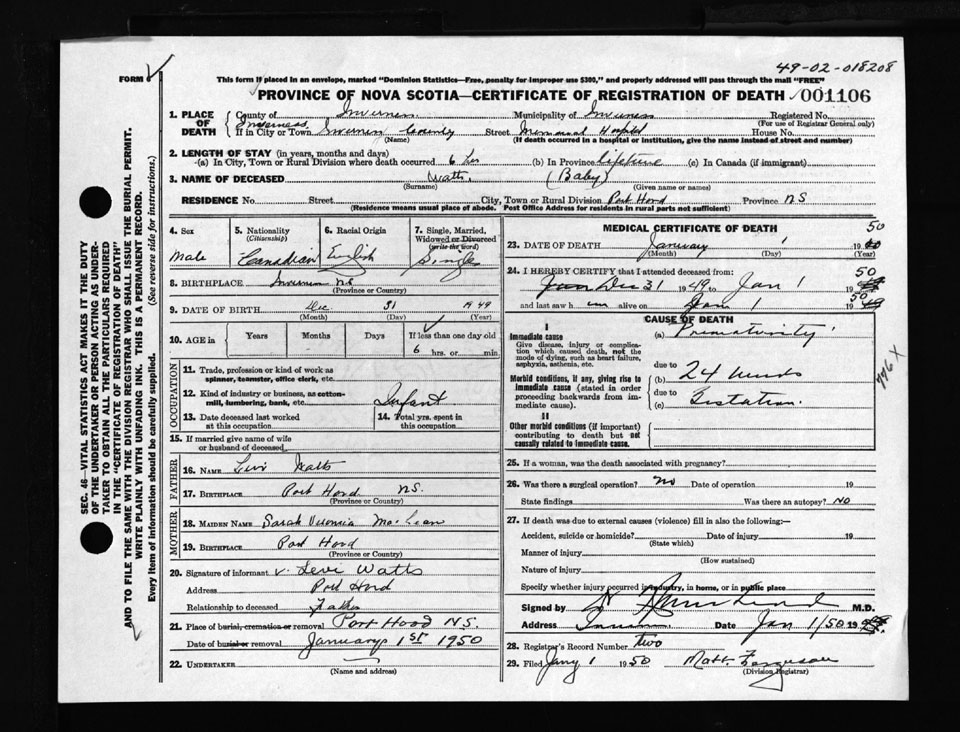 49-02-018208
FORM 6
This form if placed in an envelope, marked "Dominion Statistics—Free, penalty for improper use $300," and properly addressed will pass through the mail "FREE"
PROVINCE OF NOVA SCOTIA—CERTIFICATE OF REGISTRATION OF DEATH 001106
SEC. 46—VITAL STATISTICS ACT MAKES IT THE DUTY
OF THE UNDERTAKER OR PERSON ACTING AS UNDER-
TAKER TO OBTAIN ALL THE PARTICULARS REQUIRED
IN THE "CERTIFICATE OF REGISTRATION OF DEATH"
AND TO FILE THE SAME WITH THE DIVISION REGISTRAR WHO SHALL ISSUE THE BURIAL PERMIT.
WRITE PLAINLY WITH UNFADING INK. THIS IS A PERMANENT RECORD.
Every item of information should be carefully supplied. (See reverse side for instructions.)
1. PLACE OF DEATH
County of Inverness Municipality of Inverness Registered No.
(For use of Registrar General only)
Inverness
If in City or Town Inverness County Street Memorial Hospital House No.
(Name) (If death occurred in a hospital or institution, give the name instead of street and number)
2. LENGTH OF STAY (in years, months and days)
-(a) In City, Town or Rural Division where death occurred 6 hrs (b) In Province Lifetime (c) In Canada (if immigrant)
3. NAME OF DECEASED Watts (Baby)
(Surname) (Given name or names)
RESIDENCE No. Street City, Town or Rural Division Port Hood Province NS
(Residence means usual place of abode. Post Office Address for residents in rural parts not sufficient)
4. Sex Male
5. Nationality (Citizenship) Canadian
6. Racial Origin English
7. Single, Married, Widowed or Divorced (write the word) Single
8. BIRTHPLACE Inverness NS
(Province or Country)
9. DATE OF BIRTH Dec 31 1949
(Month) (Day) (Year)
10. AGE in Years Months Days If less than one day old
6 hrs. or min.
OCCUPATION
11. Trade, profession or kind of work as
spinner, teamster, office clerk, etc.
12. Kind of industry or business, as cotton-
mill, lumbering, bank, etc. Infant
13. Date deceased last worked
at this occupation
14. Total yrs. spent in
this occupation
15. If married give name of wife
or husband of deceased
FATHER
16. NAME Levi Watts
17. BIRTHPLACE Port Hood N.S.
(Province or Country)
MOTHER
18. MAIDEN NAME Sarah Veronica MacLean
19. BIRTHPLACE Port Hood
(Province or Country)
20. Signature of informant Levi Watts
Address Port Hood
Relationship to deceased Father
21. Place of burial, cremation or removal Port Hood N.S.
Date of burial or removal January 1st 1950
22. UNDERTAKER
(Name and address)
MEDICAL CERTIFICATE OF DEATH
23. DATE OF DEATH January 1 1950
(Month) (Day) (Year)
24. I HEREBY CERTIFY that I attended deceased from:
Dec 31 1949 to Jan 1 1950
and last saw h im alive on Jan 1 1950
CAUSE OF DEATH
I
Immediate cause
Give disease, injury or compli-
cation which caused death, not the
mode of dying, such as heart failure,
asphyxia, asthenia, etc.
(a) Prematurity
due to
Morbid conditions, if any, giving rise to
immediate cause (stated in order
proceeding backwards from im-
mediate cause).
(b) 24 weeks
due to
(c) Gestation.
II
Other morbid conditions (if important)
contributing to death but not
causally related to immediate cause.
25. If a woman, was the death associated with pregnancy?
26. Was there a surgical operation? No Date of operation 19
State findings Was there an autopsy? NO
27. If death was due to external causes (violence) fill in also the following:—
Accident, suicide or homicide? Date of injury 19
(State which)
Manner of injury
(How sustained)
Nature of injury
Specify whether injury occurred in industry, in home, or in public place
Signed by M.D.
Address Date Jan 1/50 19
28. Registrar's Record Number two
29. Filed Jany 1 1950 Matt Ferguson
(Division Registrar)